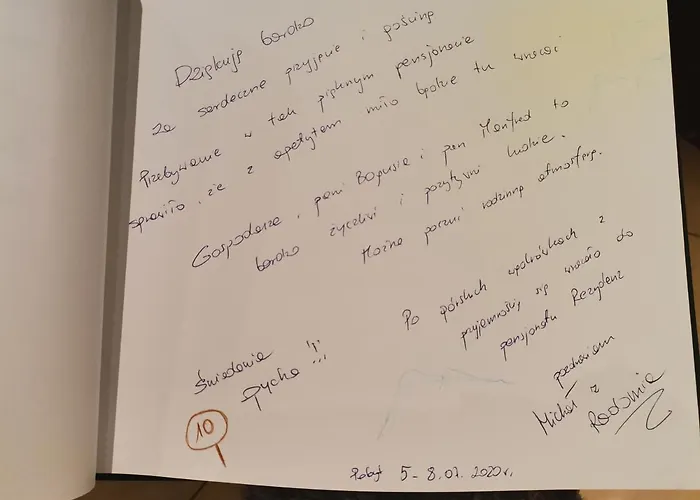 Dziękuję bardzo
za serdeczne przyjęcie i gościnę
Przebywanie w tak pięknym pensjonacie
sprawiło, że z apetytem miło będzie tu wracać
Gospodarze, pani Bogusia i pan Manfred to
bardzo życzliwi i pozytywni ludzie.
Można poczuć rodzinną atmosferę.
Po górskich wędrówkach z
przyjemnością się wracało do
pensjonatu Rezydenz
Śniadania
pycha !!!
10
pozdrawiam
Michał z
Radomia
Pobyt 5-8.07.2020r.